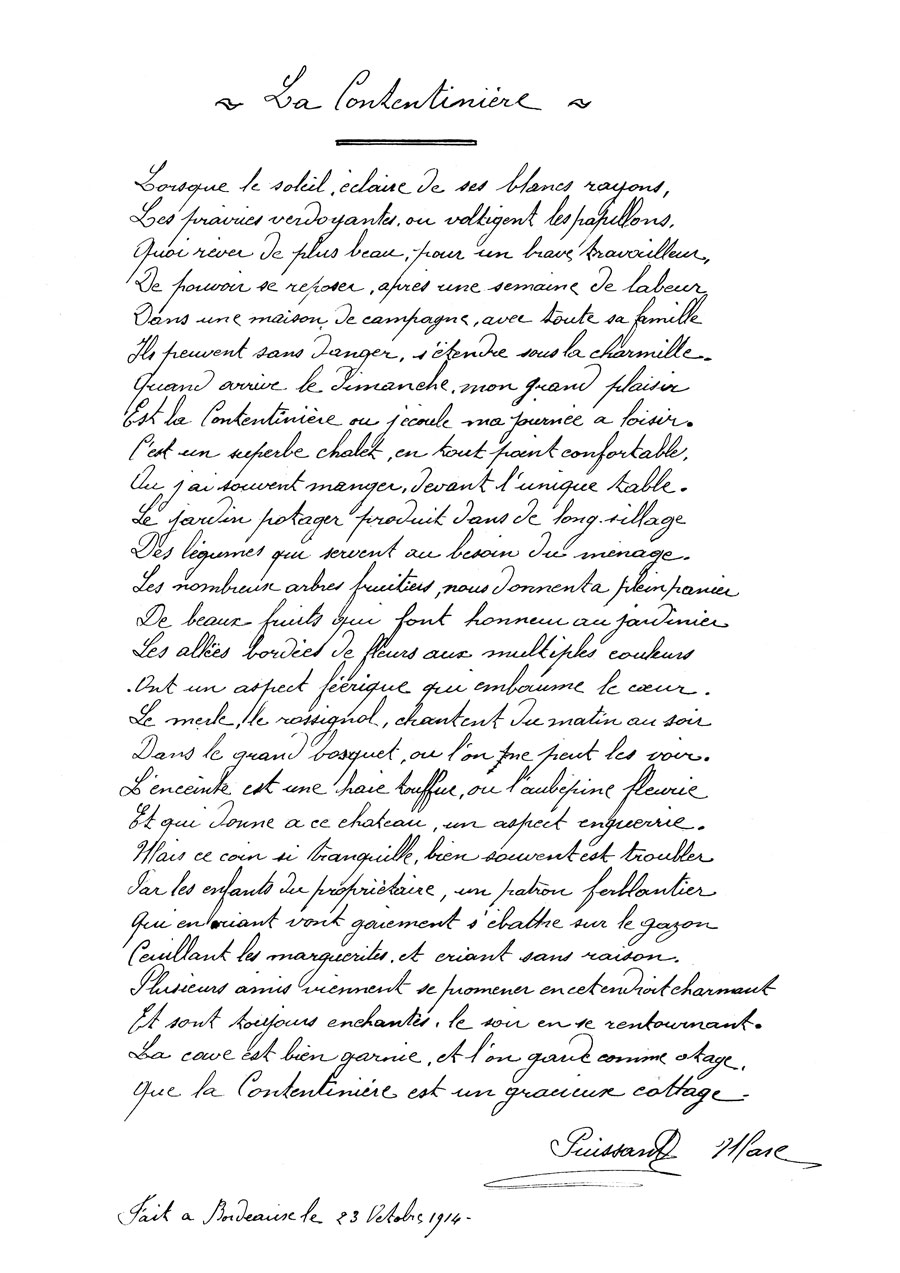 ~ La Contentinière ~
Lorsque le soleil, éclaire de ses blancs rayons,
Les prairies verdoyantes, ou voltigent les papillons,
Quoi rêver de plus beau, pour un brave travailleur,
De pouvoir se reposer, après une semaine de labeur
Dans une maison de campagne, avec toute sa famille
Ils peuvent sans danger, s'étendre sous la charmille.
Quand arrive le Dimanche, mon grand plaisir
Est la Contentinière ou j'écoule ma journée a loisir.
C'est un superbe chalet, en tout point confortable,
Ou j'ai souvent manger, devant l'unique table.
Le jardin potager produit dans de long sillage
Des légumes qui servent au besoin du ménage.
Les nombreux arbres fruitiers, nous donnent a plein panier
De beaux fruits qui font honneur au jardinier
Les allées bordées de fleurs aux multiples couleurs
Ont un aspect féerique qui embaume le cœur.
Le merle, le rossignol, chantent du matin au soir
Dans le grand bosquet, ou l'on ne peut les voir.
L'enceinte est une haie touffue, ou l'aubépine fleurie
Et qui donne a ce chateau, un aspect enguerrie.
Mais ce coin si tranquille, bien souvent est troubler
Par les enfants du propriétaire, un patron ferblantier
Qui en riant vont gaiement s'ébattre sur le gazon
Ceuillant les marguerites, et criant sans raison.
Plusieurs amis viennent se promener en cet endroit charmant
Et sont toujours enchantés, le soir en se rentournant.
La cave est bien garnie, et l'on garde comme otage,
Que la Contentinière est un gracieux cottage.
Puissant Marc
Fait a Bordeaux le 23 Octobre 1914-